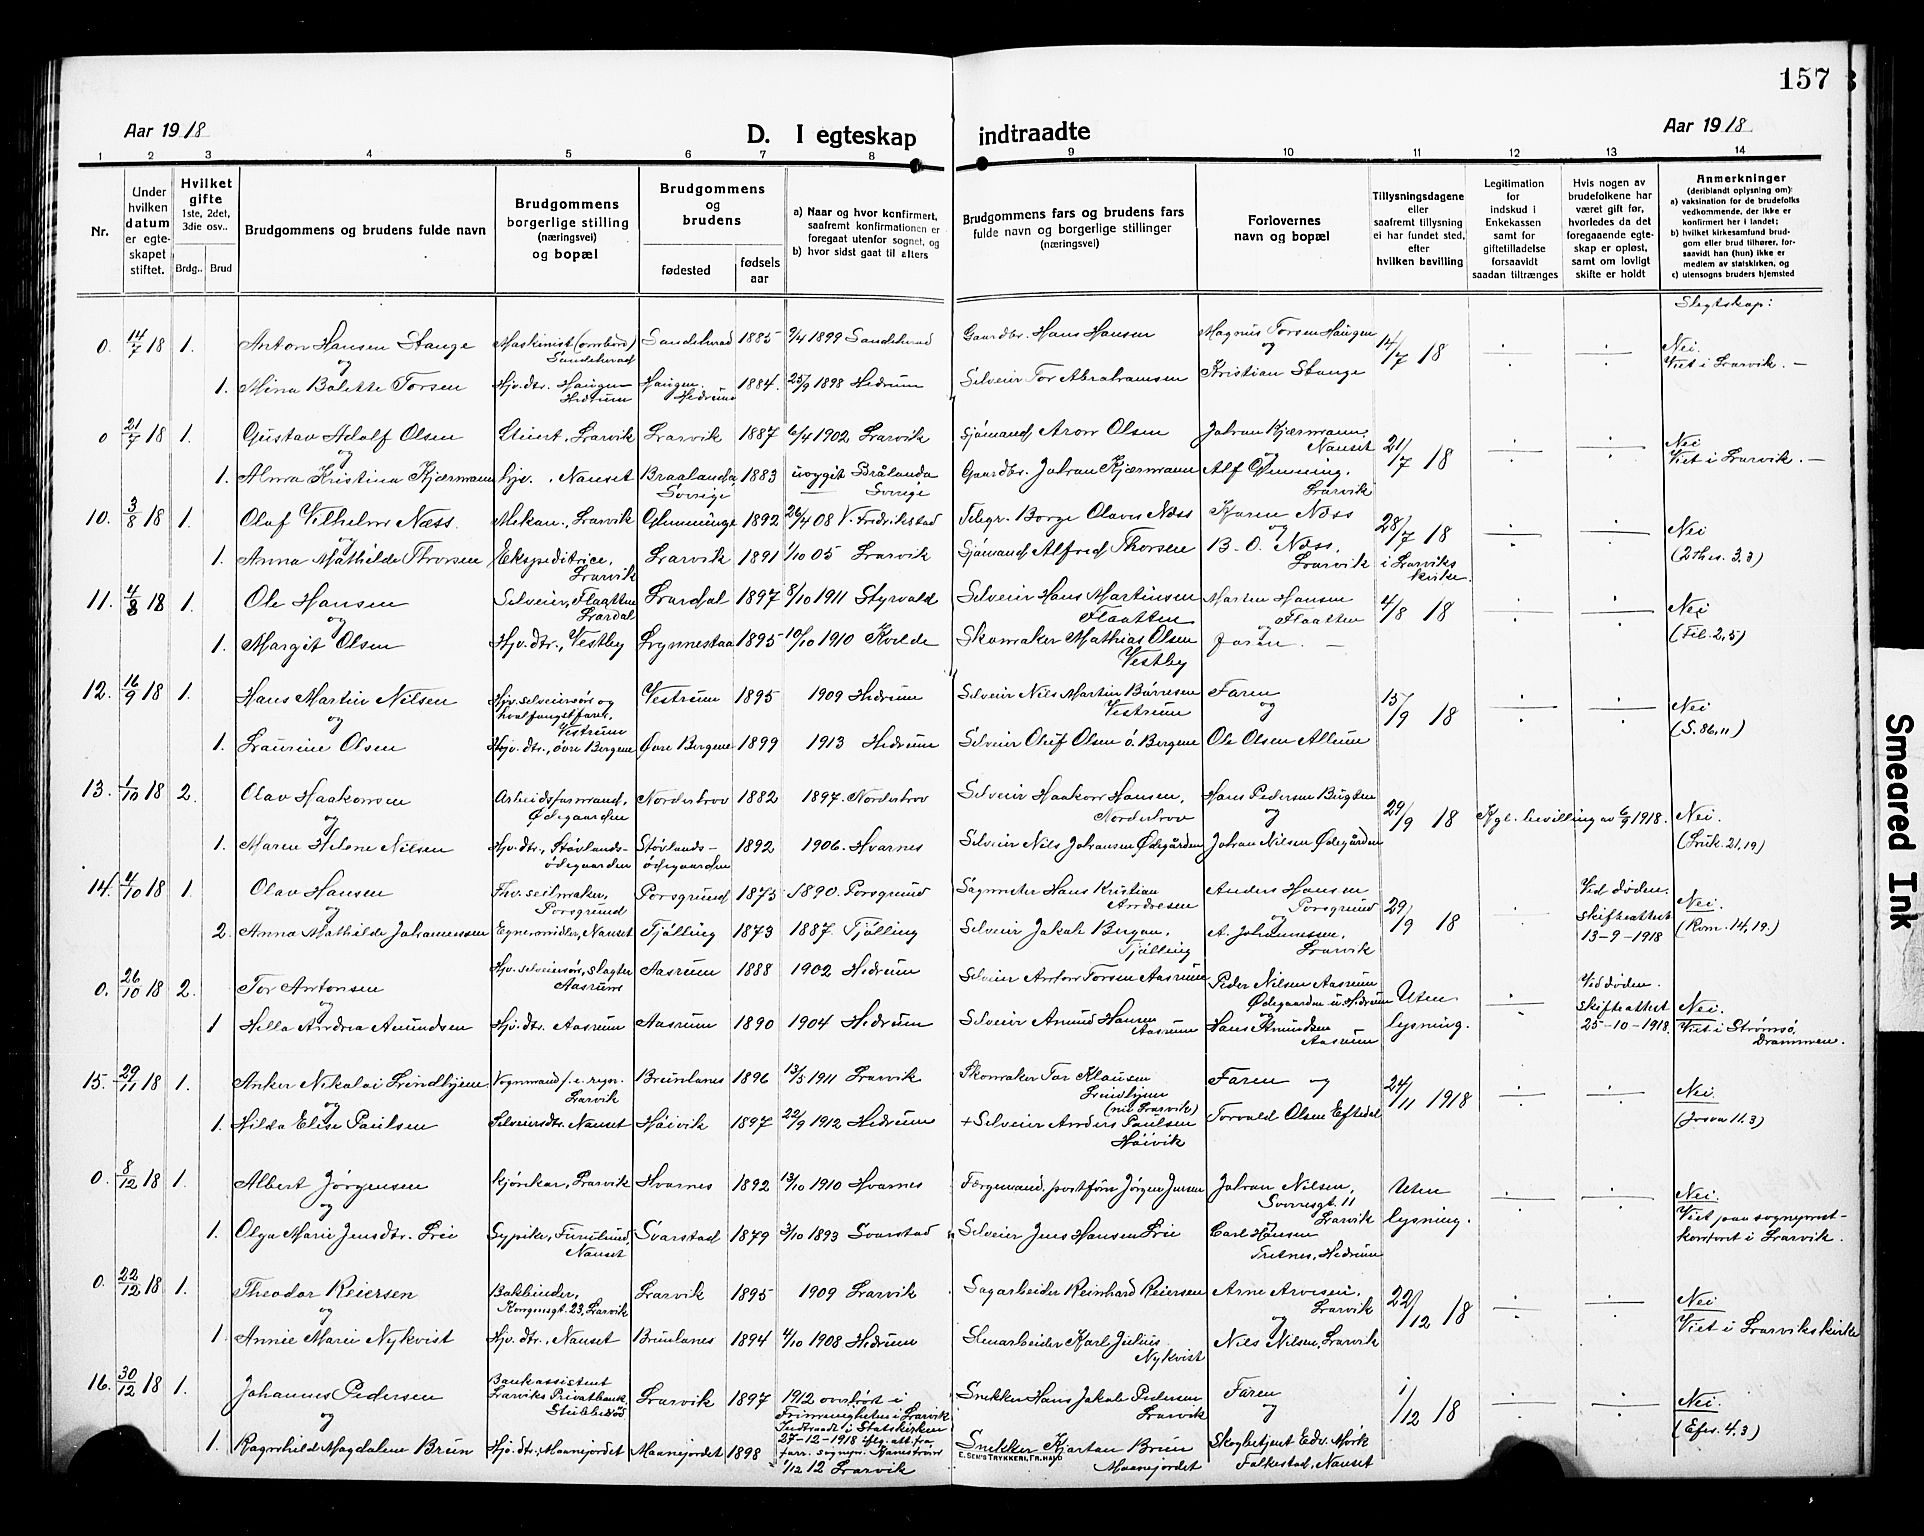 157
Aar 1918
D. I egteskap indtraadte
Aar 1918
1 2 3 4 5 6 7 8 9 10 11 12 13 14
Nr.
Under hvilken datum er egteskapet stiftet.
Hvilket gifte 1ste, 2det, 3die osv..
Brdg.. Brud
Brudgommens og brudens fulde navn
Brudgommens borgerlige stilling (næringsvei) og bopæl
Brudgommens og brudens
fødested
fødselsaar
a) Naar og hvor konfirmert, saafremt konfirmationen er foregaat utenfor sognet, og
b) hvor sidst gaat til alters
Brudgommens fars og brudens fars fulde navn og borgerlige stillinger (næringsvei)
Forlovernes navn og bopæl
Tillysningsdagene eller saafremt tillysning ei har fundet sted, efter hvilken bevilling
Legitimation for indskud i Enkekassen samt for giftetilladelse forsaavidt saadan tiltrænges
Hvis nogen av brudefolkene har været gift før, hvorledes da det foregaaende egteskap er opløst, samt om lovligt skifte er holdt
Anmerkninger (deriblandt oplysning om):
a) vaksination for de brudefolks vedkommende, der ikke er konfirmert her i landet;
b) hvilket kirkesamfund brudgom eller brud tilhører, forsaavidt han (hun) ikke er medlem av statskirken, og
c) utensogns bruders hjemsted
Slegtskap:
0. 14/7 18 1. Anton Hansen Stange Maskinist (ombord) Sandeherad Sandeherad 1885 9/4 1899 Sandeherad Gaardbr. Hans Hansen Magnus Torsen Haugen 14/7 18 Nei.
og og Viet i Larvik. —
1. Mina Balette Torsen Hjv. dtr. Haugen Hedrum Haugen. Hedrum 1884. 25/9 1898 Hedrum Selveier Tor Abrahamsen Kristian Stange
0 21/7 18 1. Gustav Adolf Olsen Larvik Larvik 1887 6/4 1902 Larvik Sjømand Aron Olsen Johan Kjærmann, Nanset 21/7 18 Nei
og Viet i Larvik. —
1. Alma Kristina Kjærmann Hjv., Nanset Braalanda, Sverige 1883 Brålanda Sverige Gaardbr. Johan Kjærmann Alf Glenning, Larvik
10. 3/8 18 1. Olaf Vilhelm Næss. Mekan., Larvik Glemminge 1892 26/4 08 V. Fredrikstad Telegr. Borge Olaves Næss Karen Næss 28/7 18 Nei
og og i Larviks kirke. (2 Thes. 3,3)
1. Anna Mathilde Thorsen Ekspeditrice, Larvik Larvik 1891 1/10 05 Larvik Sjømand Alfred Thorsen B. O. Næss, Larvik
11. 4/8 18 1. Ole Hansen Selveier, Flaatten Lardal Lardal 1897 8/10 1911 Styrvold Selveier Hans Martinsen Flaatten Martin Hansen Flaatten 4/8 18 Nei
og og (Fil. 2,5)
1. Margit Olsen Hjv. dtr., Vestby 1895 10/10 1910 Kvelde Skomaker Mathias Olsen Vestby Faren. —
12. 16/9 18 1. Hans Martin Nilsen Hjv. selveiersøn og hvalfangstfarer, Vestrum Vestrum 1895 1909 Hedrum Selveier Nils Martin Børresen Vestrum Faren 15/9 18 Nei
og og (S. 86,11)
1. Laurine Olsen Hjv. dtr., øvre Bergene Øvre Bergene 1899 1913 Hedrum Selveier Oluf Olsen ö. Bergene Ole Olsen Allum
13. 1/10 18 2. Olav Haakonsen Arbeidsformand, Ødegaarden Nordskov 1882 1897. Norderhov Selveier Haakon Hansen, Norderhov Hans Pedersen Bugten 29/9 18 Kgl. bevilling av 6/9 1918. Nei.
og og (Luk. 21,19)
1. Maren Helene Nilsen Hjv. dtr., Støvlands-ødegaarden Støvlands-ødegaarden 1892 1906. Hvarnes Selveier Nils Johansen Ødegården Johan Nilsen Ødegården
14. 4/10 18 1. Olav Hansen Fhv. seilmaker, Porsgrund Porsgrund 1873 1890. Porsgrund Sagmester Hans Kristian Andresen Anders Hansen Porsgrund 29/9 18 Ved døden. Skifteattest 13-9-1918 Nei.
og og (Rom. 14,19.)
2. Anna Mathilde Johannessen Egne midler, Nanset Tjølling 1873 1887. Tjølling Selveier Jakob Bergan, Tjølling A. Johannessen, Larvik
0. 26/10 18 2. Tor Antonsen Hjv. selveiersøn, slagter Aasrum Aasrum 1888 1902 Hedrum Selveier Anton Torsen Aasrum Peder Nilsen Aasrum Ødegaarden u. Hedrum Uten lysning. Ved døden. Skifteattest 25-10-1918. Nei.
og og Viet i Strømsø, Drammen.
1 Hella Andrea Amundsen Hjv. dtr. Aasrum Aasrum 1890 1904 Hedrum Selveier Amund Hansen Aasrum Hans Amundsen Aasrum
15. 29/11 18 1. Anker Nikolai Lindhjem Vognmand f. e. regn. Larvik Brunlanes 1896 13/5 1911 Larvik Skomaker Tor Klausen Lindhjem (nu Larvik) Faren og 24/11 1918 Nei.
og (Josva 11.3)
1. Hilda Elise Paulsen Selveiersdtr. Nanset Håivik 1897 22/9 1912 Hedrum + Selveier Anders Paulsen Håivik Torvald Olsen Eftedal
0. 8/12 18 1. Albert Jørgensen kjørekar, Larvik Hvarnes 1892 13/10 1910 Hvarnes Færgemand, Jørgen Jensen Johan Nilsen, Sverresgt. 11 Larvik Uten lysning. Nei.
og Viet paa sogneprestkontoret i Larvik.
1. Olga Marie Jensdtr. Lie Sypike, Furulund, Nanset Svarstad 1879 3/10 1893 Svarstad Selveier Jens Hansen Lie Carl Hansen Tretnes, Hedrum
0. 22/12 18 1. Theodor Reiersen Bokbinder, Kongensgt. 23, Larvik Larvik 1895 1909 Larvik Sagarbeider Reinhard Reiersen Arne Arvesen, Larvik 22/12 18 Nei
og og Viet i Larviks kirke
1. Annie Marie Nykvist Hjv. dtr., Nanset Brunlanes 1894 4/10 1908 Hedrum Stenarbeider Karl Julius Nykvist Nils Nilsen, Larvik
16. 30/12 18 1. Johannes Pedersen Bankassistent Larviks Privatbank, Stubberød Larvik 1897 1912 overhørt i Frimenigheten i Larvik Indtraadt i Statskirken 27-12-1918 iflg. att. fra Snekker Hans Jakob Pedersen Larvik Faren 1/12 18 Nei.
og og (Efes. 4.3)
1. Ragnhild Magdalene Brun Hjv. dtr., Maanejordet Maanejordet 1898 1/12 12 Larvik Snekker Kjartan Brun Maanejordet Skogbetjent Edv. Mørk Falkestad, Nanset
E. SEM'S TRYKKERI, FR.HALD
Smeared Ink